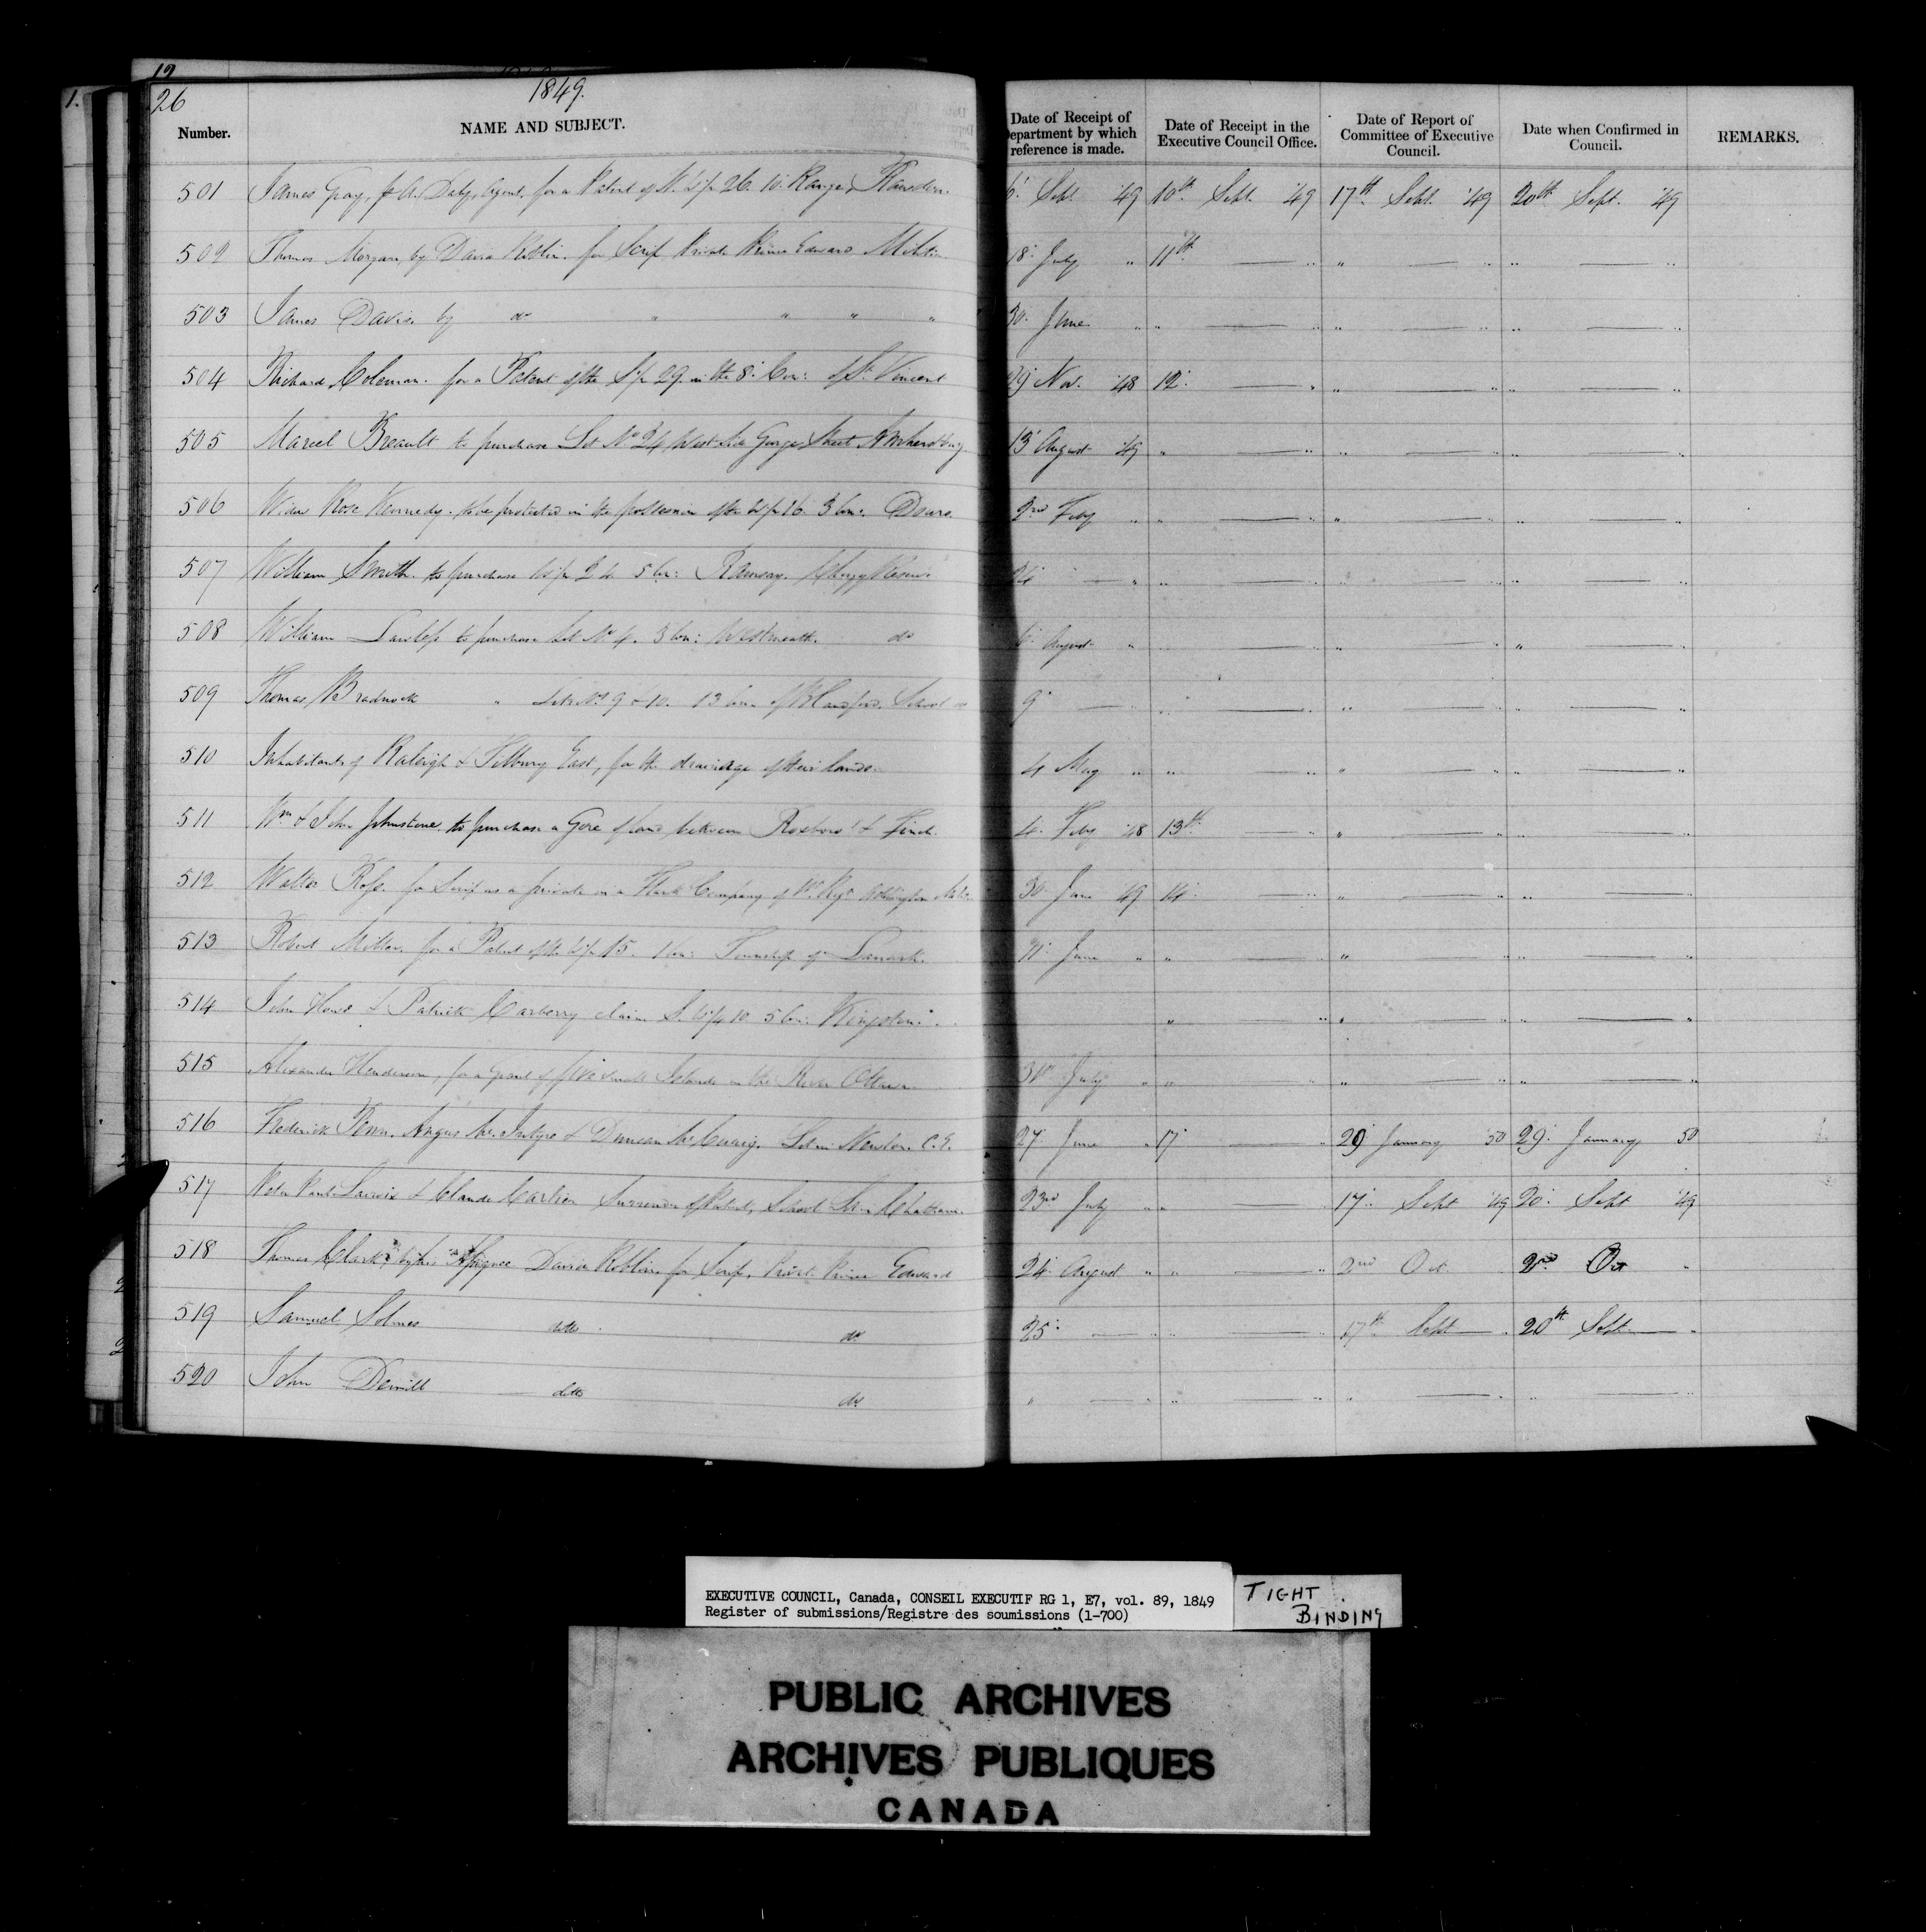 12
1.
26
1849.
Number. NAME AND SUBJECT. Date of Receipt of Department by which reference is made. Date of Receipt in the Executive Council Office. Date of Report of Committee of Executive Council. Date when Confirmed in Council. REMARKS.
501 James Gray, by A. Daly, Agent, for a Patent of N. W ½ 26. 10. Range, Rawdon. 6. Sept. '49 10th Sept. '49 17th Sept. '49 20th Sept. '49
502 Thomas Morgan by David Roblin. for Scrip Private Prince Edward Militia 18. July " 11th — " " — " " — "
503 James Davis. by do " " " " 30. June " " — " " — " " — "
504 Richard Coleman. for a Patent of the S. ½ 29. in the 8. Con: of St. Vincent 29 Nov. '48 12. — " " — " " — "
505 Marcel Breault to purchase Lot No 24 West Side George Street Amherstburg 13 August '49 " — " " — " " — "
506 Widow Rose Kennedy. to be protected in the possession of the W. ½ 16. 3 Con. Douro. 2nd Feby " " — " " — " " — "
507 William Smith. to purchase W. ½ 2 5 Con: Ramsay. Clergy Reserve 24 — " " — " " — " " — "
508 William to purchase Lot No 4. 3 Con: Westmeath. do 6. August " " — " " — " " — "
509 Thomas Bradnock " Lots Nos 9 & 10. 13 Con. of Blandford. School do 9 — " " — " " — " " — "
510 Inhabitants of Raleigh & Tilbury East, for the drainage of their lands. 4 May " " — " " — " " — "
511 Wm & John Johnstone. to purchase a Gore of land between Roxboro' & Finch. 4. Feby '48 13th — " " — " " — "
512 Walter Ross. for Scrip as a private in a Flank Company of 1st Regt 30. June '49 14. — " " — " " — "
513 Robert Miller. for a Patent of the W. ½ 15. 1 Con: Township of Lanark. 21. June " " — " " — " " — "
514 John & Patrick Carberry claim S. W. ¼ 10. 5 Con: Kingston. " — " " — " " — "
515 Alexander Henderson, for a grant of five small Islands in the River Ottawa 31st July " " — " " — " " — "
516 Frederick Penn. Angus McIntyre & Duncan McCuaig. Lot in Newton. C. E. 27. June " 17 — " 29 January '50 29. January 50
517 Peter Paul Lacroix & Claude Cartier Surrender of Patent, School Chatham. 23rd July " " — " 17. Sept '49 20. Sept '49
518 Thomas Clark, by his Assignee David Roblin. for Scrip, Privt. Prince Edward 24. August " " — " 2nd Oct. 2nd Oct "
519 Samuel Solmes ditto do 25. — " " — " 17th Sept — " 20th Sept — "
520 John Demill — ditto do " — " " — " " — " " — "
EXECUTIVE COUNCIL, Canada, CONSEIL EXECUTIF RG 1, E7, vol. 89, 1849
Register of submissions/Registre des soumissions (1-700)
TIGHT
BINDING
PUBLIC ARCHIVES
ARCHIVES PUBLIQUES
CANADA